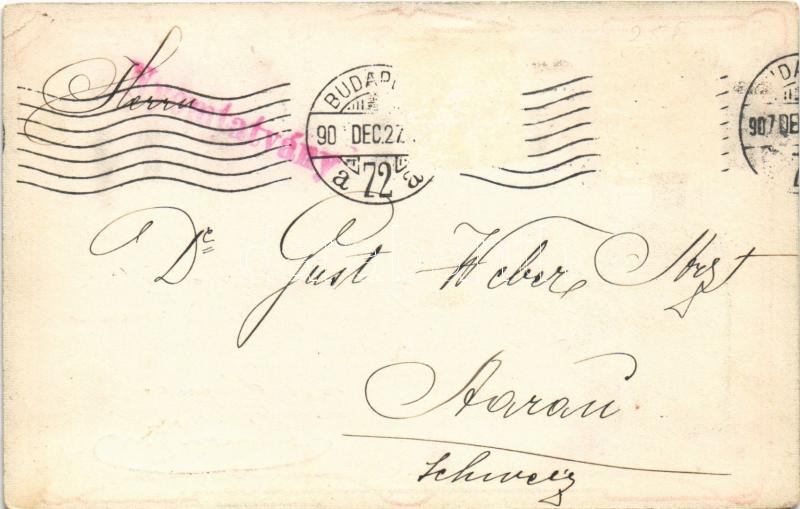 Herrn
Nyomtatvány
BUDAP
90 DEC.27
72
a a
DA
907 DE
Dr Gust Weber Arzt
Aarau
Schweiz